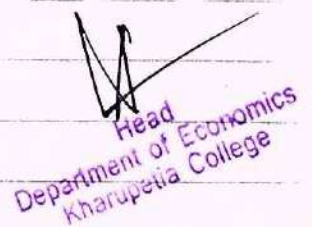 Head
Department of Economics
Kharupetia College